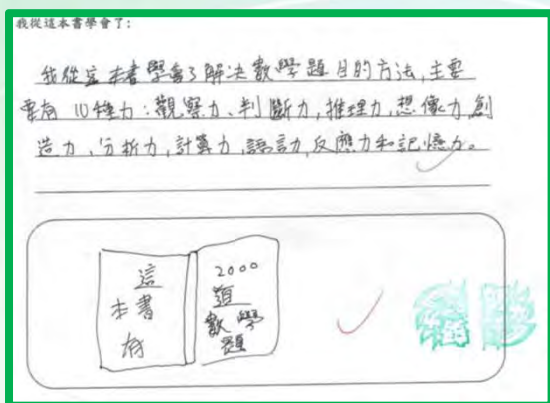 我從這本書學會了:
我從這本書學會了解決數學題目的方法,主要
要有 10種力:觀察力、判斷力,推理力,想像力,創
造力、分析力,計算力,語言力,反應力和記憶力。
這
本書
有
2000
道
數學
題